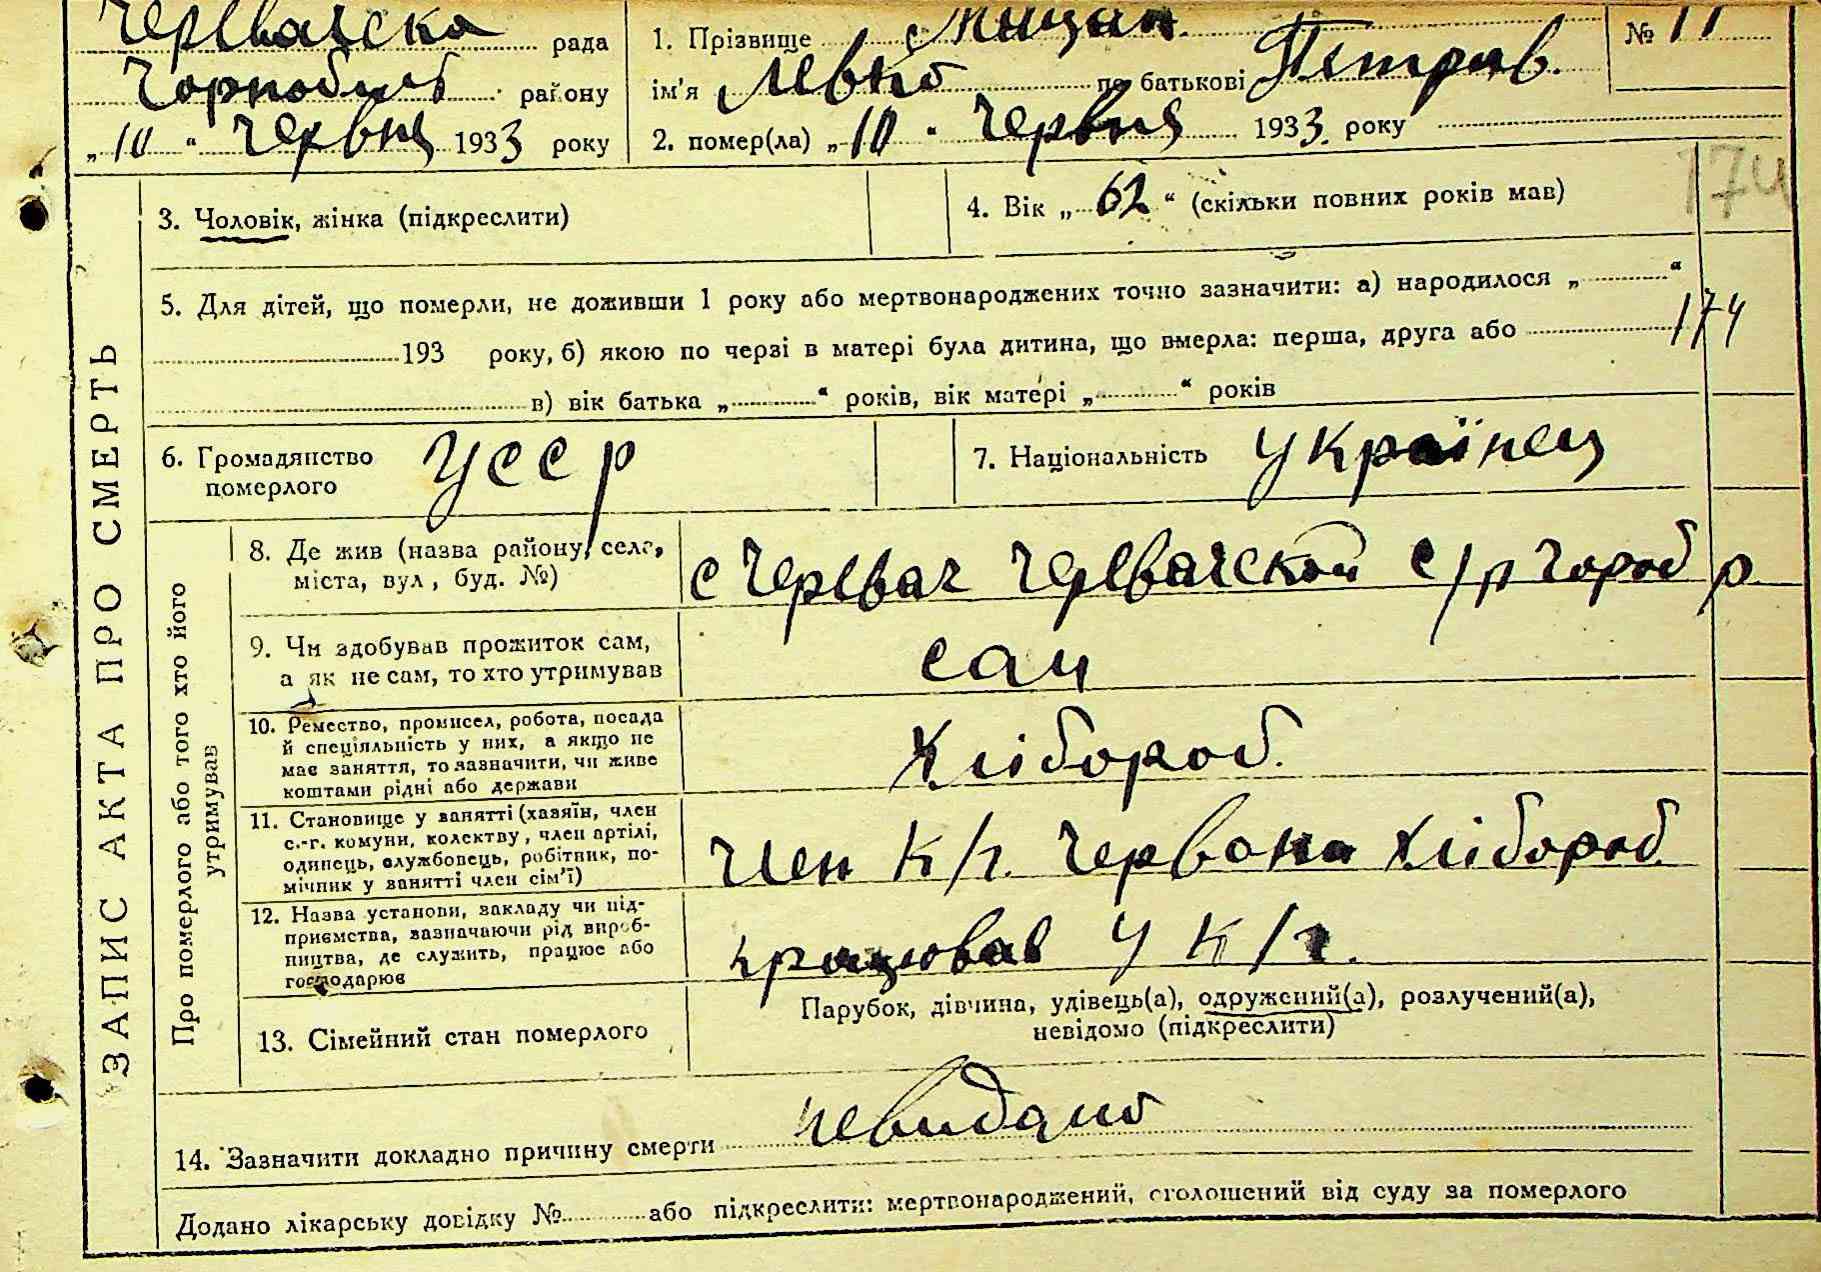 Черевачска рада
Чорнобиль району
„10“ Червня 1933 року
1. Прізвище Мицан № 11
ім'я Левко по батькові Петров.
2. помер(ла) „10“ Червня 1933. року
174
3. Чоловік, жінка (підкреслити)
4. Вік „62“ (скільки повних років мав)
5. Для дітей, що померли, не доживши 1 року або мертвонароджених точно зазначити: а) народилося „ “
193 року, б) якою по черзі в матері була дитина, що вмерла: перша, друга або 174
в) вік батька „ “ років, вік матері „ “ років
6. Громадянство
померлого
УССР
7. Національність Українец
ЗАПИС АКТА ПРО СМЕРТЬ
Про померлого або того хто його
утримував
8. Де жив (назва району, села,
міста, вул, буд. №)
с Черевач Черевачской с/р Чороб р
9. Чи здобував прожиток сам,
а як не сам, то хто утримував
сам
10. Ремество, промисел, робота, посада
й спеціяльність у них, а якщо не
має заняття, то зазначити, чи живе
коштами рідні або держави
Хлібороб.
11. Становище у занятті (хазяїн, член
с.-г. комуни, колектву, член артілі,
одинець, службовець, робітник, по-
мічник у занятті член сім'ї)
Член к/г. Червона Хлібороб
12. Назва установи, закладу чи під-
приємства, зазначаючи рід вироб-
ництва, де служить, працює або
господарює
працював у к/г.
13. Сімейний стан померлого
Парубок, дівчина, удівець(а), одружений(а), розлучений(а),
невідомо (підкреслити)
14. Зазначити докладно причину смерти невидамо
Додано лікарську довідку № або підкреслити: мертвонароджений, оголошений від суду за померлого